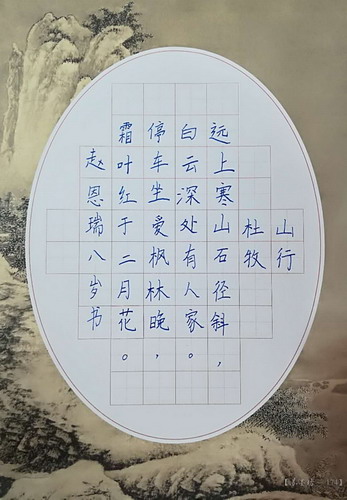 山行
杜牧
远上寒山石径斜，
白云深处有人家。
停车坐爱枫林晚，
霜叶红于二月花。
赵恩瑞八岁书